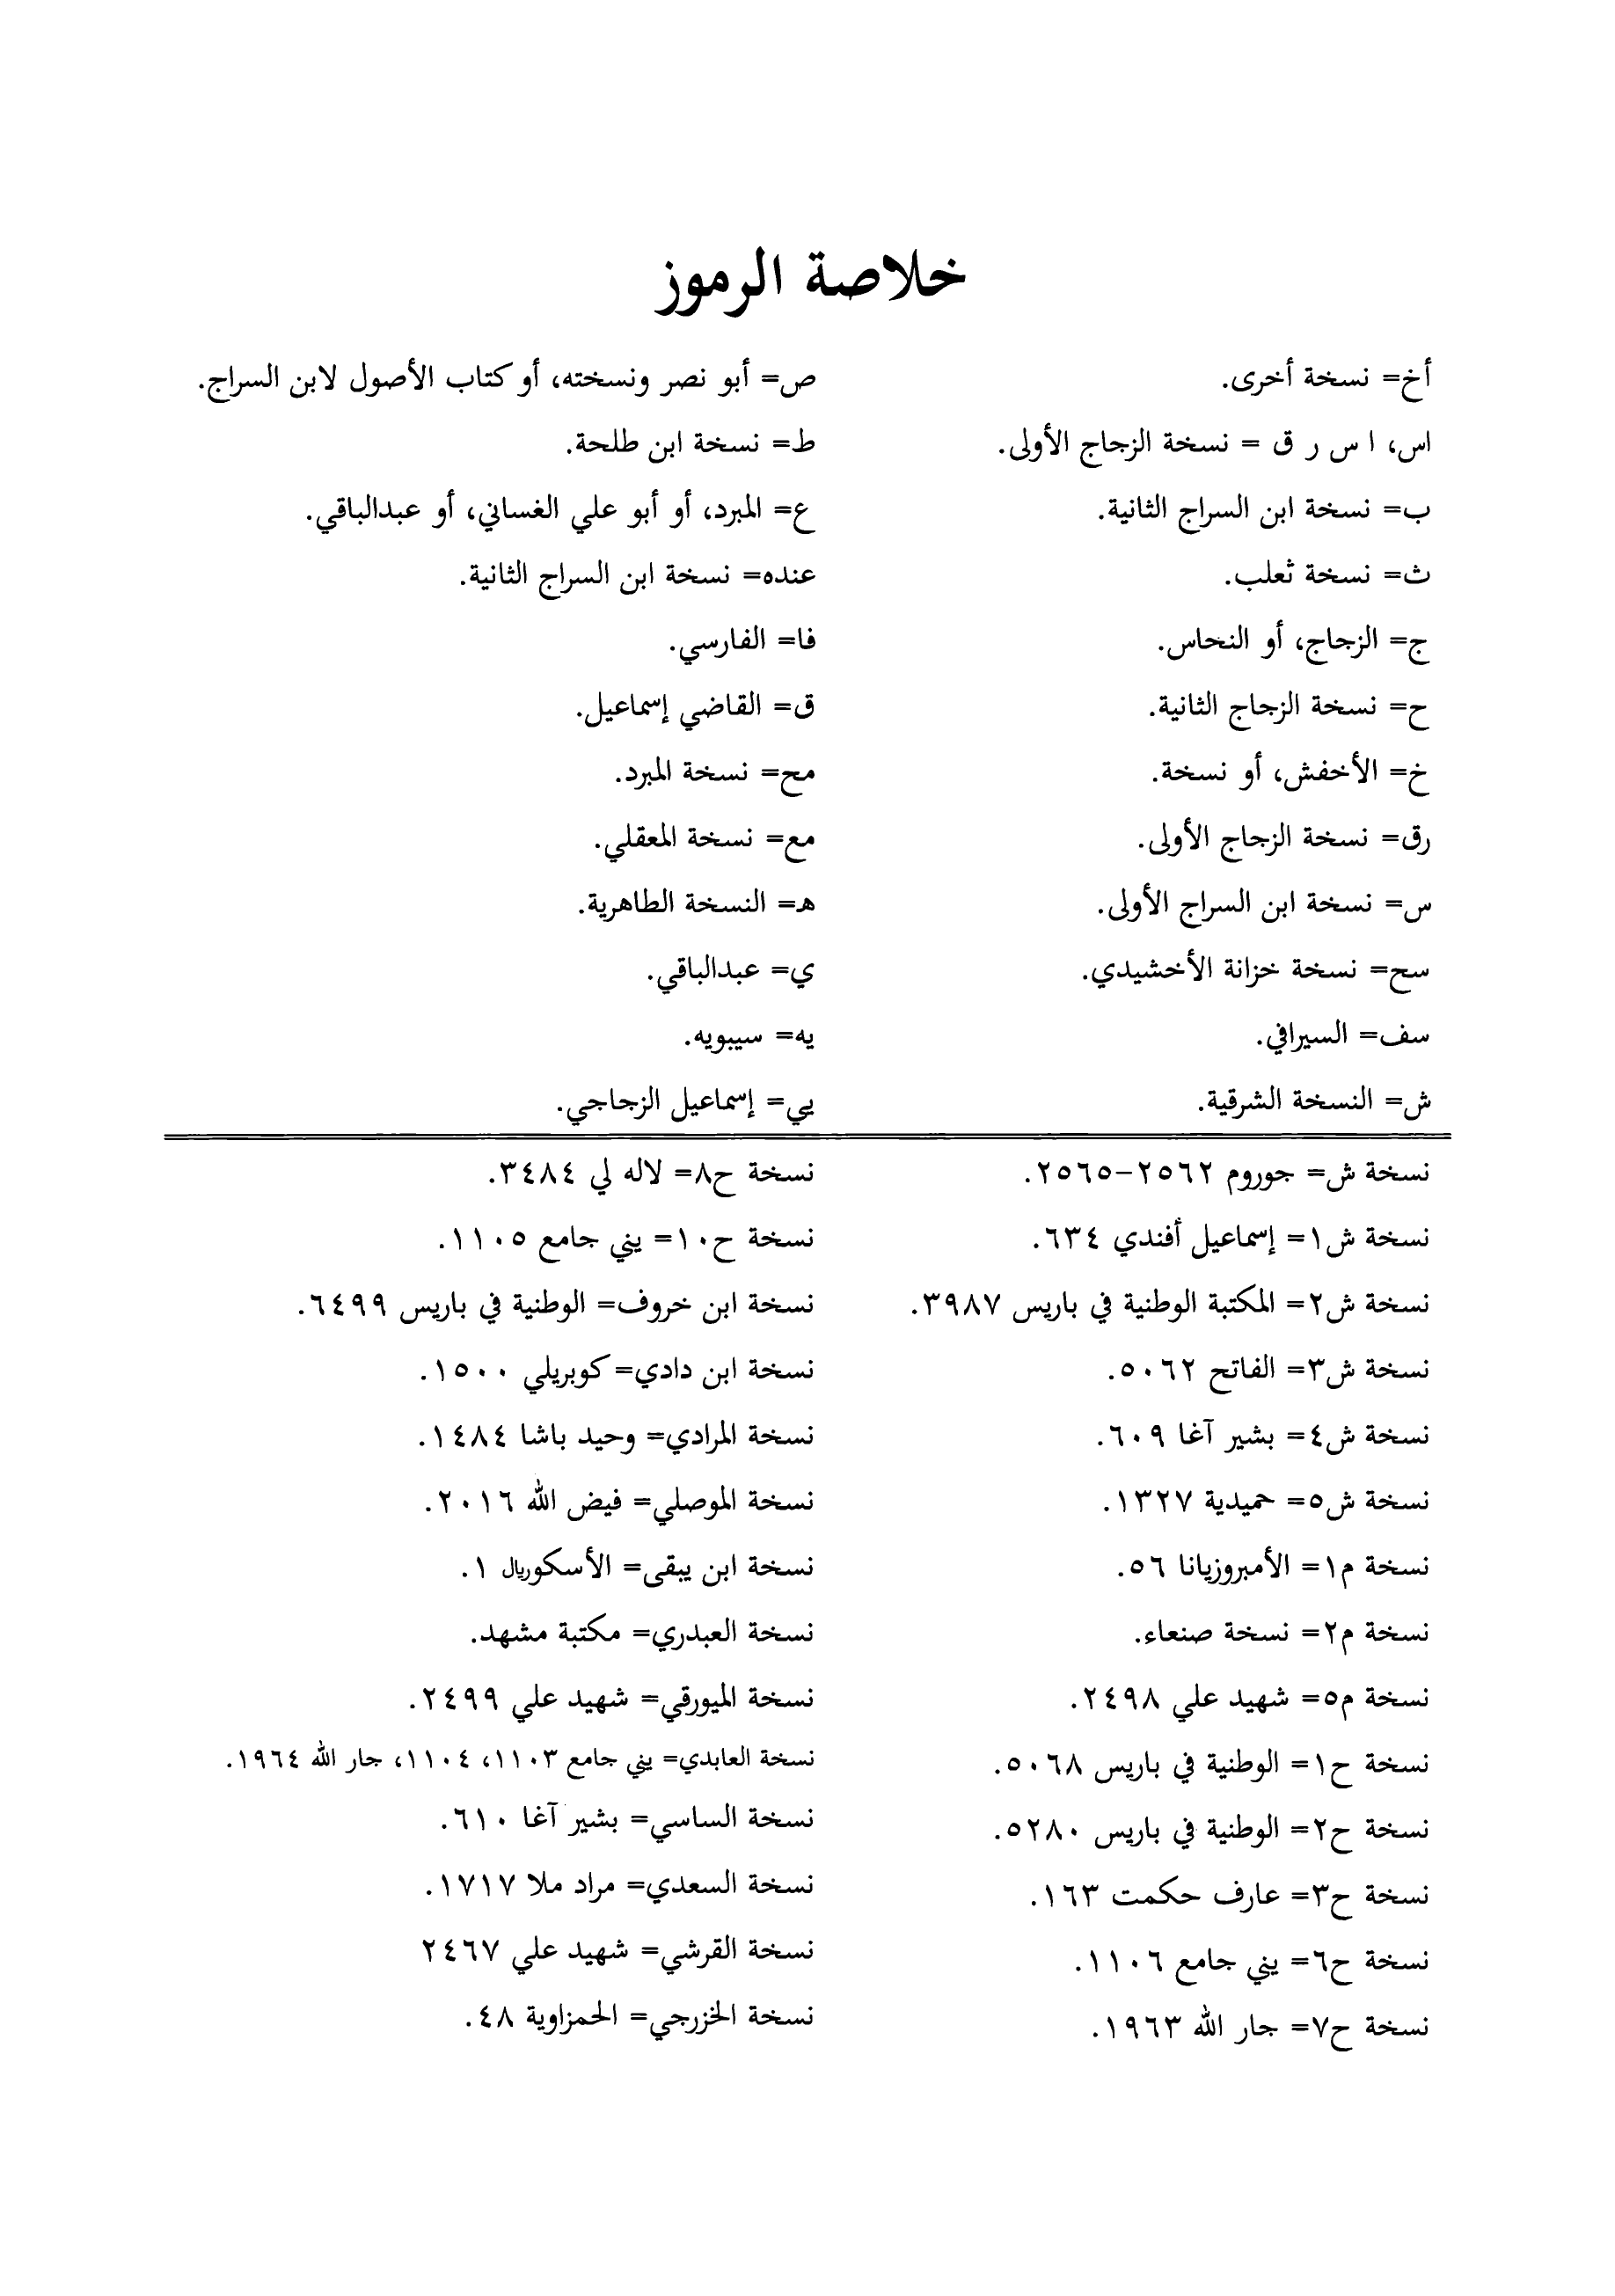 خلاصة الرموز
أخ= نسخة أخرى.
اس، ا س ر ق = نسخة الزجاج الأولى.
ب= نسخة ابن السراج الثانية.
ث= نسخة ثعلب.
ج= الزجاج، أو النحاس.
ح= نسخة الزجاج الثانية.
خ= الأخفش، أو نسخة.
رق= نسخة الزجاج الأولى.
س= نسخة ابن السراج الأولى.
سح= نسخة خزانة الأخشيدي.
سف= السيرافي.
ش= النسخة الشرقية.
ص= أبو نصر ونسخته، أو كتاب الأصول لابن السراج.
ط= نسخة ابن طلحة.
ع= المبرد، أو أبو علي الغساني، أو عبدالباقي.
عنده= نسخة ابن السراج الثانية.
فا= الفارسي.
ق= القاضي إسماعيل.
مح= نسخة المبرد.
مع= نسخة المعقلي.
هـ= النسخة الطاهرية.
ي= عبدالباقي.
يه= سيبويه.
يي= إسماعيل الزجاجي.
نسخة ش= جوروم ٢٥٦٢-٢٥٦٥.
نسخة ش١= إسماعيل أفندي ٦٣٤.
نسخة ش٢= المكتبة الوطنية في باريس ٣٩٨٧.
نسخة ش٣= الفاتح ٥٠٦٢.
نسخة ش٤= بشير آغا ٦٠٩.
نسخة ش٥= حميدية ١٣٢٧.
نسخة م١= الأمبروزيانا ٥٦.
نسخة م٢= نسخة صنعاء.
نسخة م٥= شهيد علي ٢٤٩٨.
نسخة ح١= الوطنية في باريس ٥٠٦٨.
نسخة ح٢= الوطنية في باريس ٥٢٨٠.
نسخة ح٣= عارف حكمت ١٦٣.
نسخة ح٦= يني جامع ١١٠٦.
نسخة ح٧= جار الله ١٩٦٣.
نسخة ح٨= لاله لي ٣٤٨٤.
نسخة ح١٠= يني جامع ١١٠٥.
نسخة ابن خروف= الوطنية في باريس ٦٤٩٩.
نسخة ابن دادي= كوبريلي ١٥٠٠.
نسخة المرادي= وحيد باشا ١٤٨٤.
نسخة الموصلي= فيض الله ٢٠١٦.
نسخة ابن يبقى= الأسكوريال ١.
نسخة العبدري= مكتبة مشهد.
نسخة الميورقي= شهيد علي ٢٤٩٩.
نسخة العابدي= يني جامع ١١٠٣، ١١٠٤، جار الله ١٩٦٤.
نسخة الساسي= بشير آغا ٦١٠.
نسخة السعدي= مراد ملا ١٧١٧.
نسخة القرشي= شهيد علي ٢٤٦٧
نسخة الخزرجي= الحمزاوية ٤٨.